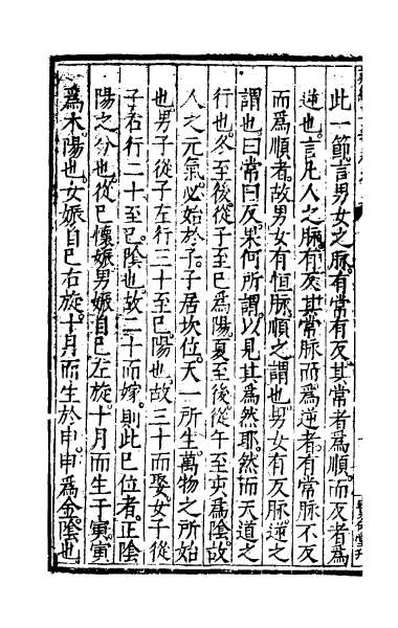 此一節言男女之脉。有常有反。其常者爲順。而反者爲
逆也。言凡人之脉。有反其常脉而爲逆者。有常脉不反
而爲順者。故男女有恒脉。順之謂也。男女有反脉。逆之
謂也。曰常曰反。果何所謂。以見其爲然耶。然而天道之
行也。冬至後。從子至巳爲陽。夏至後。從午至亥爲陰。故
人之元氣。必始於子。子居坎位。天一所生。萬物之所始
也。男子從子左行。三十至巳。陽也。故三十而娶。女子從
子右行。二十至巳。陰也。故二十而嫁。則此巳位者。正陰
陽之分也。從巳懷娠。男娠自巳左旋。十月而生于寅。寅
爲木。陽也。女娠自巳右旋。十月而生於申。申爲金。陰也